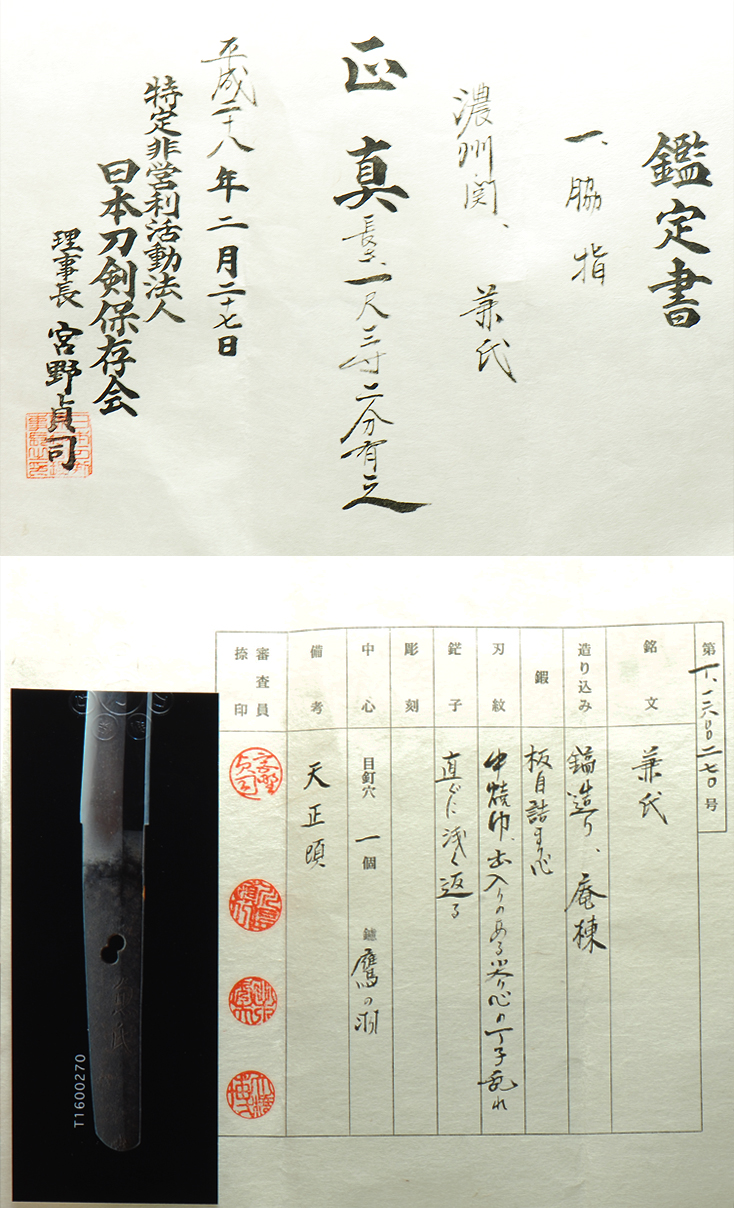 鑑定書
一、脇指
濃州関、兼氏
正真
長さ一尺三寸二分有之
平成二十八年二月二十七日
特定非営利活動法人
日本刀剣保存会
理事長 宮野貞司
第 丁、一六〇〇二七〇 号
銘文
兼氏
造り込み
鎬造り、庵棟
鍛
板目詰まり心
刃紋
中焼巾、出入りのある尖り心の丁子乱れ
鋩子
直ぐに浅く返る
彫刻
中心
目釘穴 一個 鑢 鷹の羽
備考
天正頃
審査員
捺印
T1600270